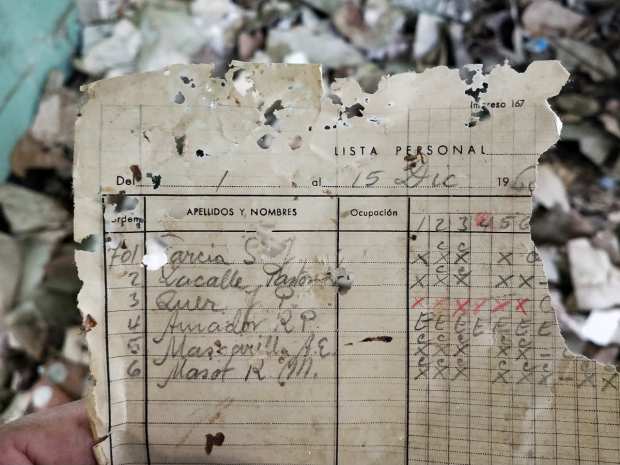 Impreso 167
LISTA PERSONAL
Del 1 al 15 Dic 196
Orden APELLIDOS Y NOMBRES Ocupación 1 2 3 4 5 6
701 Garcia S. J. X X X X
2 Lacalle X X X X X -
3 Quer J. P. X X X X X X
4 Amador R. P. E E E E E E
5 Mascarilla A. E. X X X X X -
6 Masot R. M. X X X X X X - X X